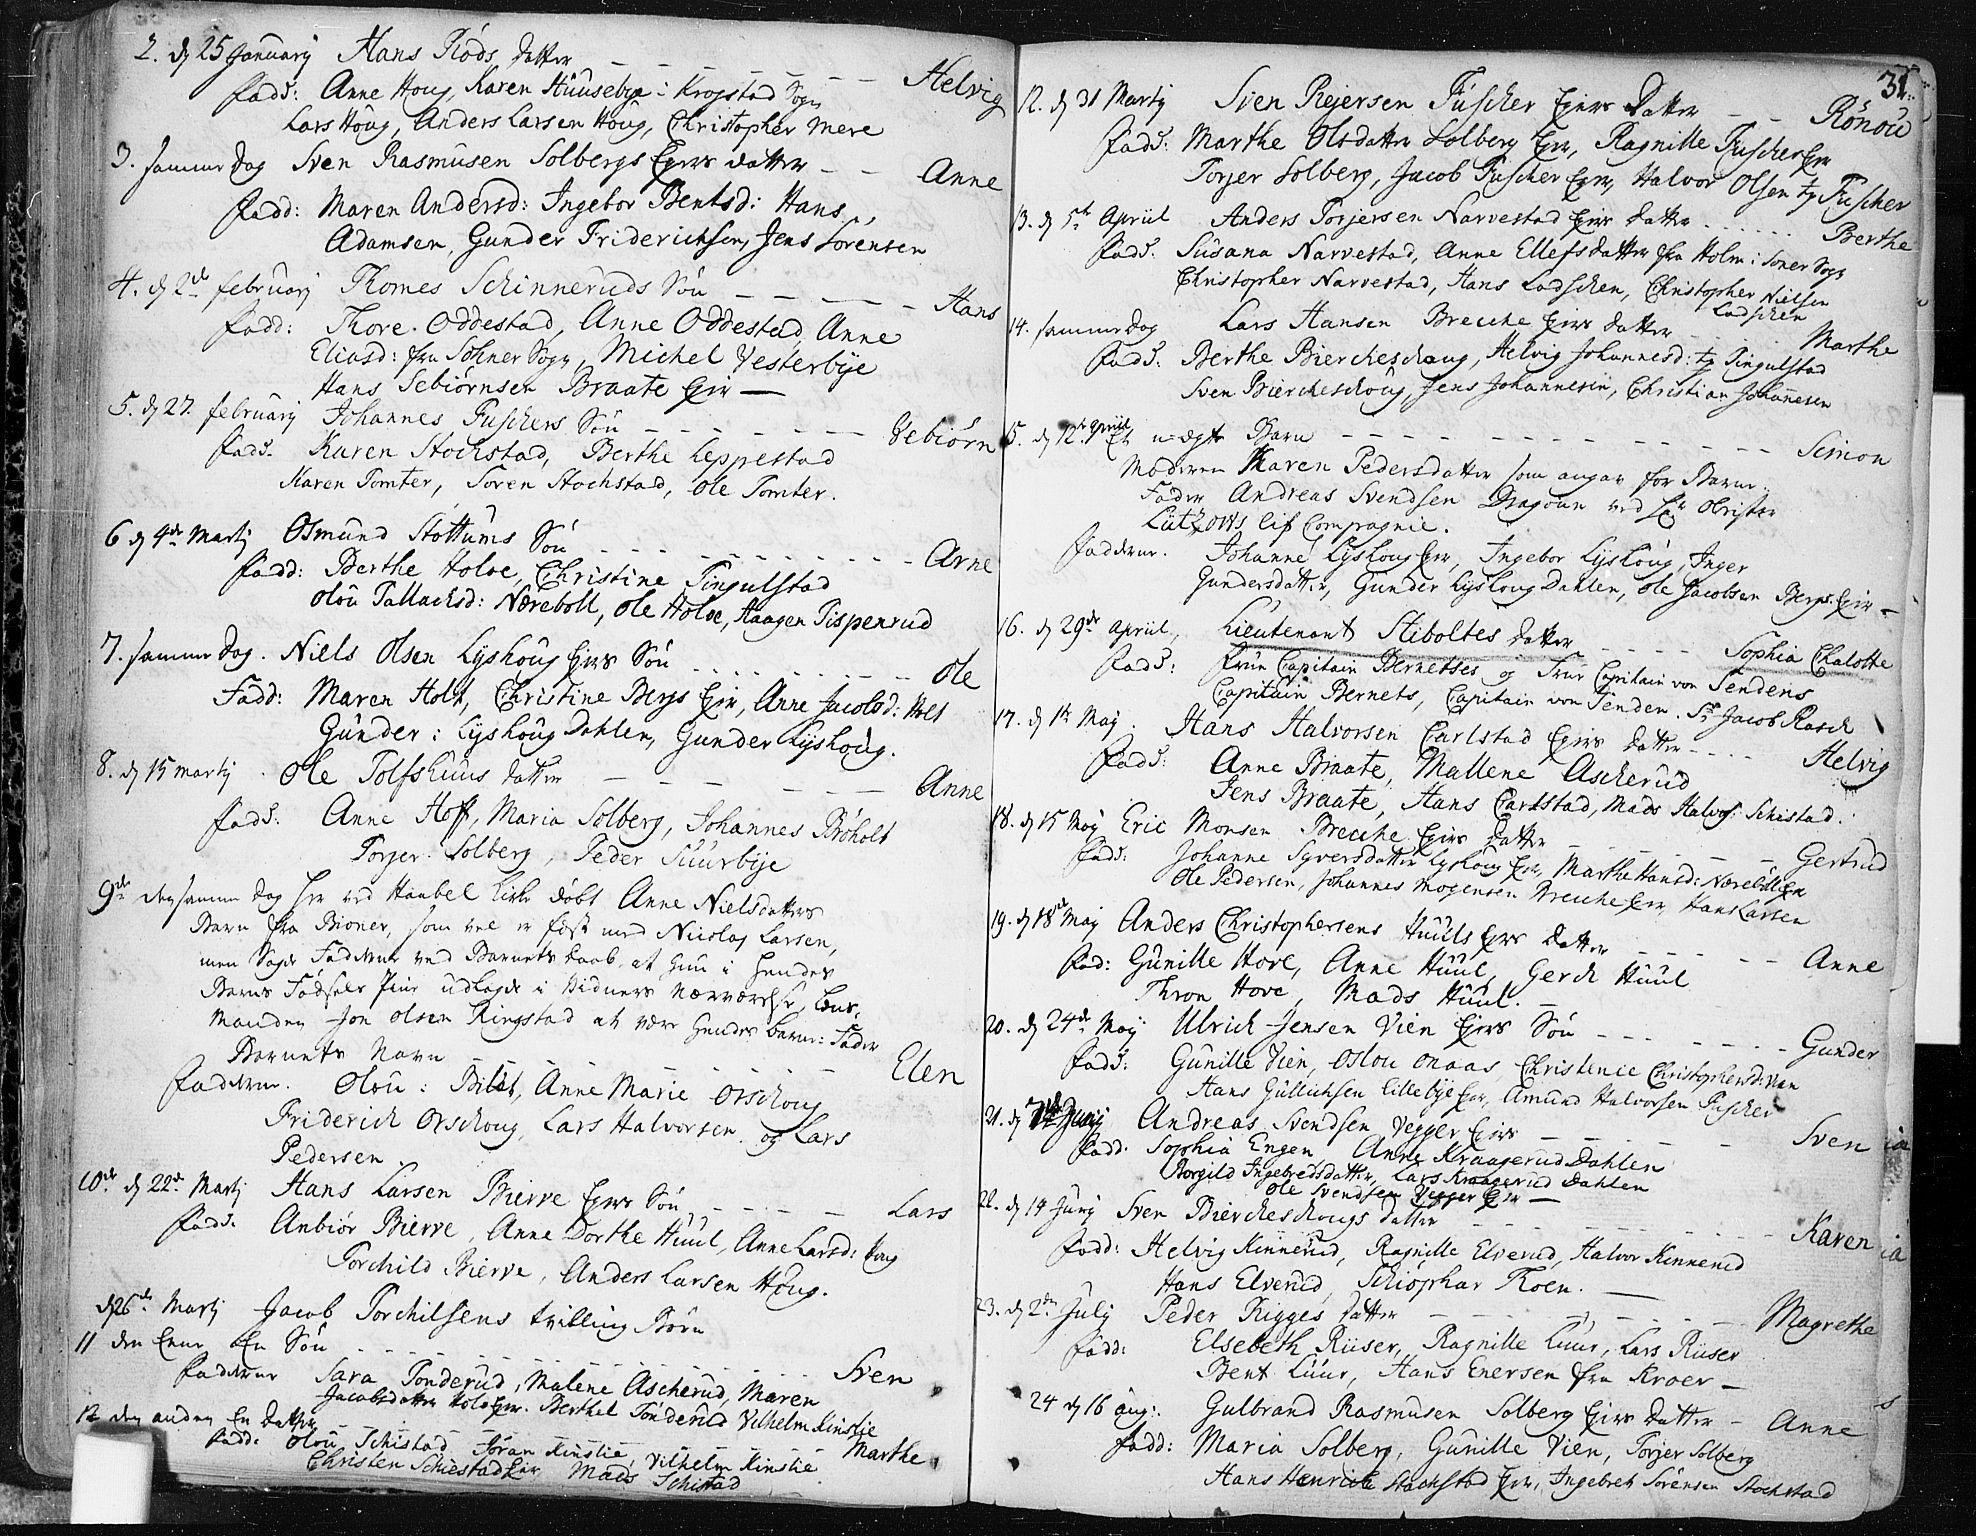 2. d 25 January Hans Riöds datter - - - - - Helvig
fadd: Anne Houg, Karen Huusebye i Krogstad Sogn
Lars Houg, Anders Larsen Houg, Christopher Mere
3. samme dag Sven Rasmusen Solbergs Eiers datter - - Anne
fadd: Maren Andersd: Ingebor Bentsd: Hans
Adamsen, Gunder Friderichsen, Jens Sörensen
4. d 2de february Thomes Schinneruds Sön - - - - Hans
fadd: Thore Oddestad, Anne Oddestad, Anne
Eliasd: fra Sohner Sogn, Michel Vesterbye
Hans Sebiörnsen Braate Eier
5. d 27. february Johannes Fuschers Sön - - - - Sebiörn
fadd. Karen Stochstad, Berthe Leppestad
Karen Tomter, Soren Stochstad, Ole Tomter.
6 d 4de Martj Osmund Stottums Sön - - - - Arne
fadd: Berthe Holoe, Christine Tingulstad
Olou Tallachsd: Næreböll, Ole Holoe, Haagen Tispenrud
7. samme dag. Niels Olsen Lyshoug Eiers Sön - - - - Ole
Fadd: Maren Holt, Christine Bergs Eier, Anne Jacobsd: Holt
Gunder: Lyshoug Dahlen, Gunder Lyshoug.
8. d 15 martj. Ole Tolfshuus datter - - - - Anne
fadd: Anne Hoff, Maria Solberg, Johannes Bröholt
Torger. Solberg, Peder Suurbye
9de den samme dag her ved Haabel Kirke döbt Anne Nielsdatters
Barn fra Bioner, som vel er fæst med Nicolay Larsen,
men Sagde Fadderne ved Barnets daab, at hun i hendes
Barns Födsels Pine udlagde i Vidners nærværelse, Lens-
manden Jon Olsen Ringstad at være hendes barne: Fader
Barnets Navn - - - - Elen
Fadderne. Olou: Bilet, Anne Marie Orschoug
Friderich Orschoug, Lars Halvorsen og Lars
Pedersen.
10de d 22de Martj Hans Larsen Bierve Eiers Sön - - - - Lars
fadd. Anbiör Bierve, Anne Dorthe Huul, Anne Larsd: Houg
Torchild Bierve, Anders Larsen Houg.
d 26de Martj Jacob Torchilsens tvilling Börn
11 den Eene En Sön - - - - Sven
Fadderne Sara Tonderud, Malene Ascherud, Maren
Jacobsdatter Holo Eier. Berthel Tonderud Vilhelm Kinslie
12 den anden En datter - - - - Marthe
fadd: Olou Schistad Jöran Kinslie, Vilhelm Kinslie
Christen Schiestad Eier Mads Schistad
31.
12. d 31 Martj Sven Rejersen Fuscher Eiers datter - - Rönou
fadd: Marthe Olsdatter Solberg Eier, Ragnille Fuscher Eier
Torjer Solberg, Jacob Fuscher Eier, Halvor Olsen tg Fuscher
13. d 5te Apriil Anders Torjersen Narvestad Eiers datter - - - Berthe
fadd. Susana Narvestad, Anne Ellefsdatter fra Holm i Soner Sogn
Christopher Narvestad, Hans Ladschen, Christopher Nielsen
Ladschen
14. samme dag Lars Hansen Brecche Eiers datter - - - Marthe
fadd: Berthe Bierckeschoug, Helvig Johannesd: tg Tingulstad
Sven Bierckeschoug, Jens Johannesen, Christian Johannesen
15. d 12te Apriil Et uægte Barn - - - - Simon
Moderen Karen Pedersdatter som angav for Barne
Fader Andreas Svendsen Dragoun ved Hr Obrister
Lützows lif Compagnie.
Fadderne. Johanne Lyshoug Eier, Ingebor Lyshoug, Inger
Gundersdatter, Gunder Lyshoug Dahlen, Ole Jacobsen Bergs Eier
16. d 29de Apriil, Lieutenant Stiboltes datter - - - - Sophia Chalotte
fadd: Frue Capitain Bernetses og Frue Capitain von Tendens
Capitain Bernets, Capitain von Tenden. Sr Jacob Rasch
17. d 1te Maj. Hans Halvorsen Carlstad Eiers datter - - - Helvig
fadd: Anne Braate, Mallene Ascherud
Jens Braate, Hans Carlstad, Mads Halvors: Schistad.
18. d 15 Maj Eric Monsen Brecche Eiers datter - - - - Gertrud
fadd: Johanne Syversdatter Lyshoug Eier, Marthe Hansd: Nærebøll Eier
Ole Pedersen, Johannes Mogensen Brecche Eier, Hans Larsen
19. d 18de Maj Anders Christophersens Huuls Eiers datter - - - - Anne
fad: Gunille Hove, Anne Huul, Gerdt Huul
Thron Hove, Mads Huul.
20. d 24de Maj Ulrich Jensen Vien Eiers Sön - - - - Gunder
fadd: Gunille Vien, Oslou Onaas, Christence Christophersd: Vien
Hans Gullichsen Lillebye Eier, Amund Halvorsen Fuscher
21. d Junj Andreas Svendsen Vegger Eiers - - - - Sven
fadd. Sophia Engen, Anne Kraagerud Dahlen
Borgild Ingebredsdatter, Lars Kraagerud Dahlen
Ole Svendsen Vegger Eier
22. d 14 Junj Sven Bierckeschougs datter - - - - Karen
fadd: Helvig Kinnerud, Ragnille Elverud, Halvor Kinnerud
Hans Elverud, Schiöphar Thoen.
23. d 2den Julj Peder Rigges datter - - - - Magrethe
fadd: Elsebeth Riiser, Ragnille Luur, Lars Riiser
Bent Luur, Hans Enersen fra Kroer
24 d 16 aug: Gulbrand Rasmusen Solberg Eiers datter - Anne
fadd: Maria Solberg, Gunille Vien, Torjer Solberg
Hans Henrich Stochstad Eier, Ingebret Sörensen Stochstad